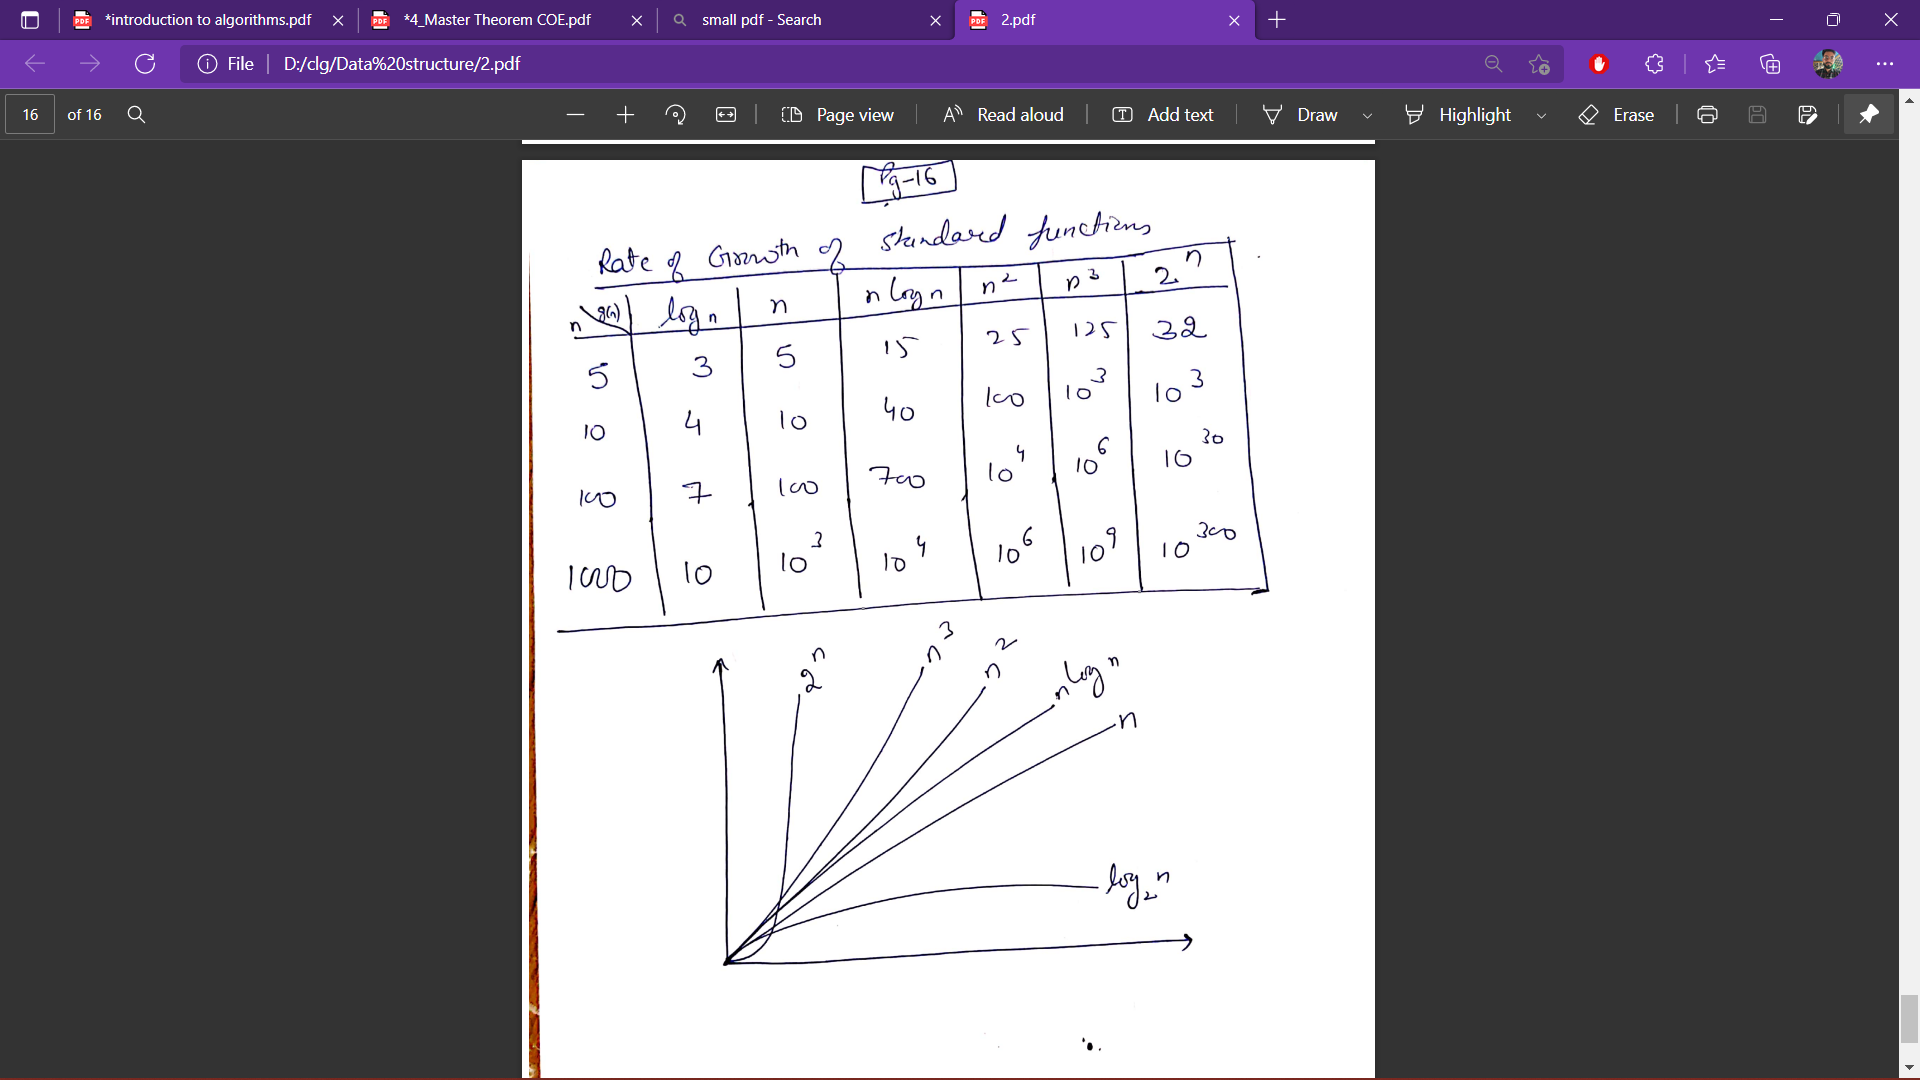 *introduction to algorithms.pdf *4_Master Theorem COE.pdf small pdf - Search 2.pdf
File D:/clg/Data%20structure/2.pdf
16 of 16 Page view Read aloud Add text Draw Highlight Erase
Pg-16
Rate of Growth of standard functions
n g(n) log n n n log n n² n³ 2ⁿ
5 3 5 15 25 125 32
10 4 10 40 100 10³ 10³
100 7 100 700 10⁴ 10⁶ 10³⁰
1000 10 10³ 10⁴ 10⁶ 10⁹ 10³⁰⁰
2ⁿ n³ n² n log n
n
log₂ n